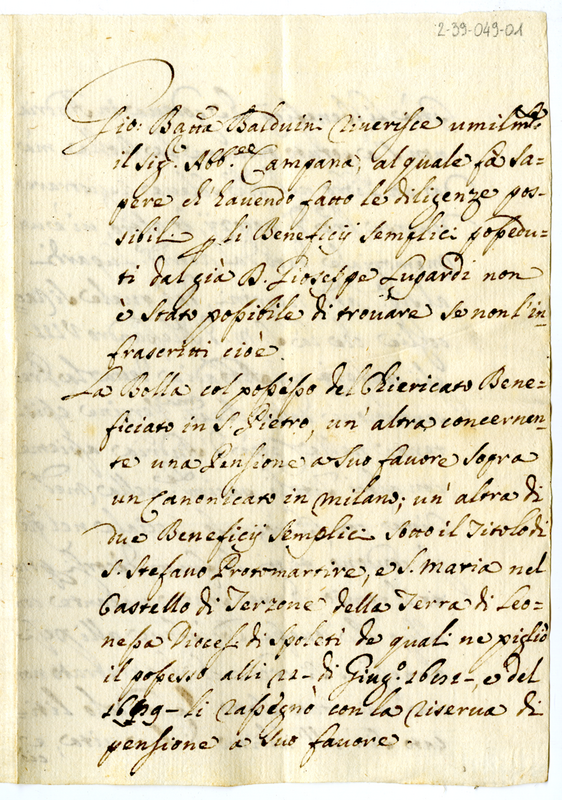 2-39-049-01
Gio: Batta Balduini riverisce umilmte
il Sig.r Abb.ee Campana, al quale fà sa=
pere ch'havendo fatto le diligenze pos=
sibili p li Beneficij semplici possedu=
ti dal già B. Gioseppe Lugardi non
è stato possibile di trovare se non l'in=
frascritti cioè.
La Bolla col possesso del Chiericato Bene=
ficiato in S. Pietro, un'altra concernen=
te una Pensione a suo favore sopra
un Canonicato in Milano; un'altra di
due Beneficij semplici sotto il Titolo di
S. Stefano Protomartire, e S. Maria nel
Castello di Terzone della Terra di Leo=
nessa Diocesi di Spoleti de quali ne pigliò
il possesso alli di Giug.o e del
li rassegnò con la riserva di
pensione a suo favore